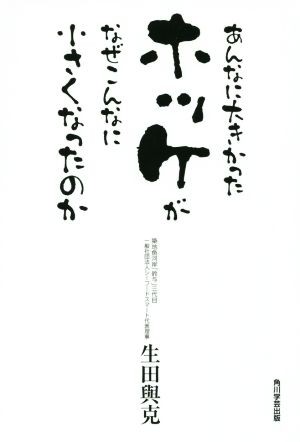 あんなに大きかった
ホッケが
なぜこんなに
小さくなったのか
築地魚河岸「鈴与」三代目
一般社団法人シーフードスマート代表理事
生田與克
角川学芸出版